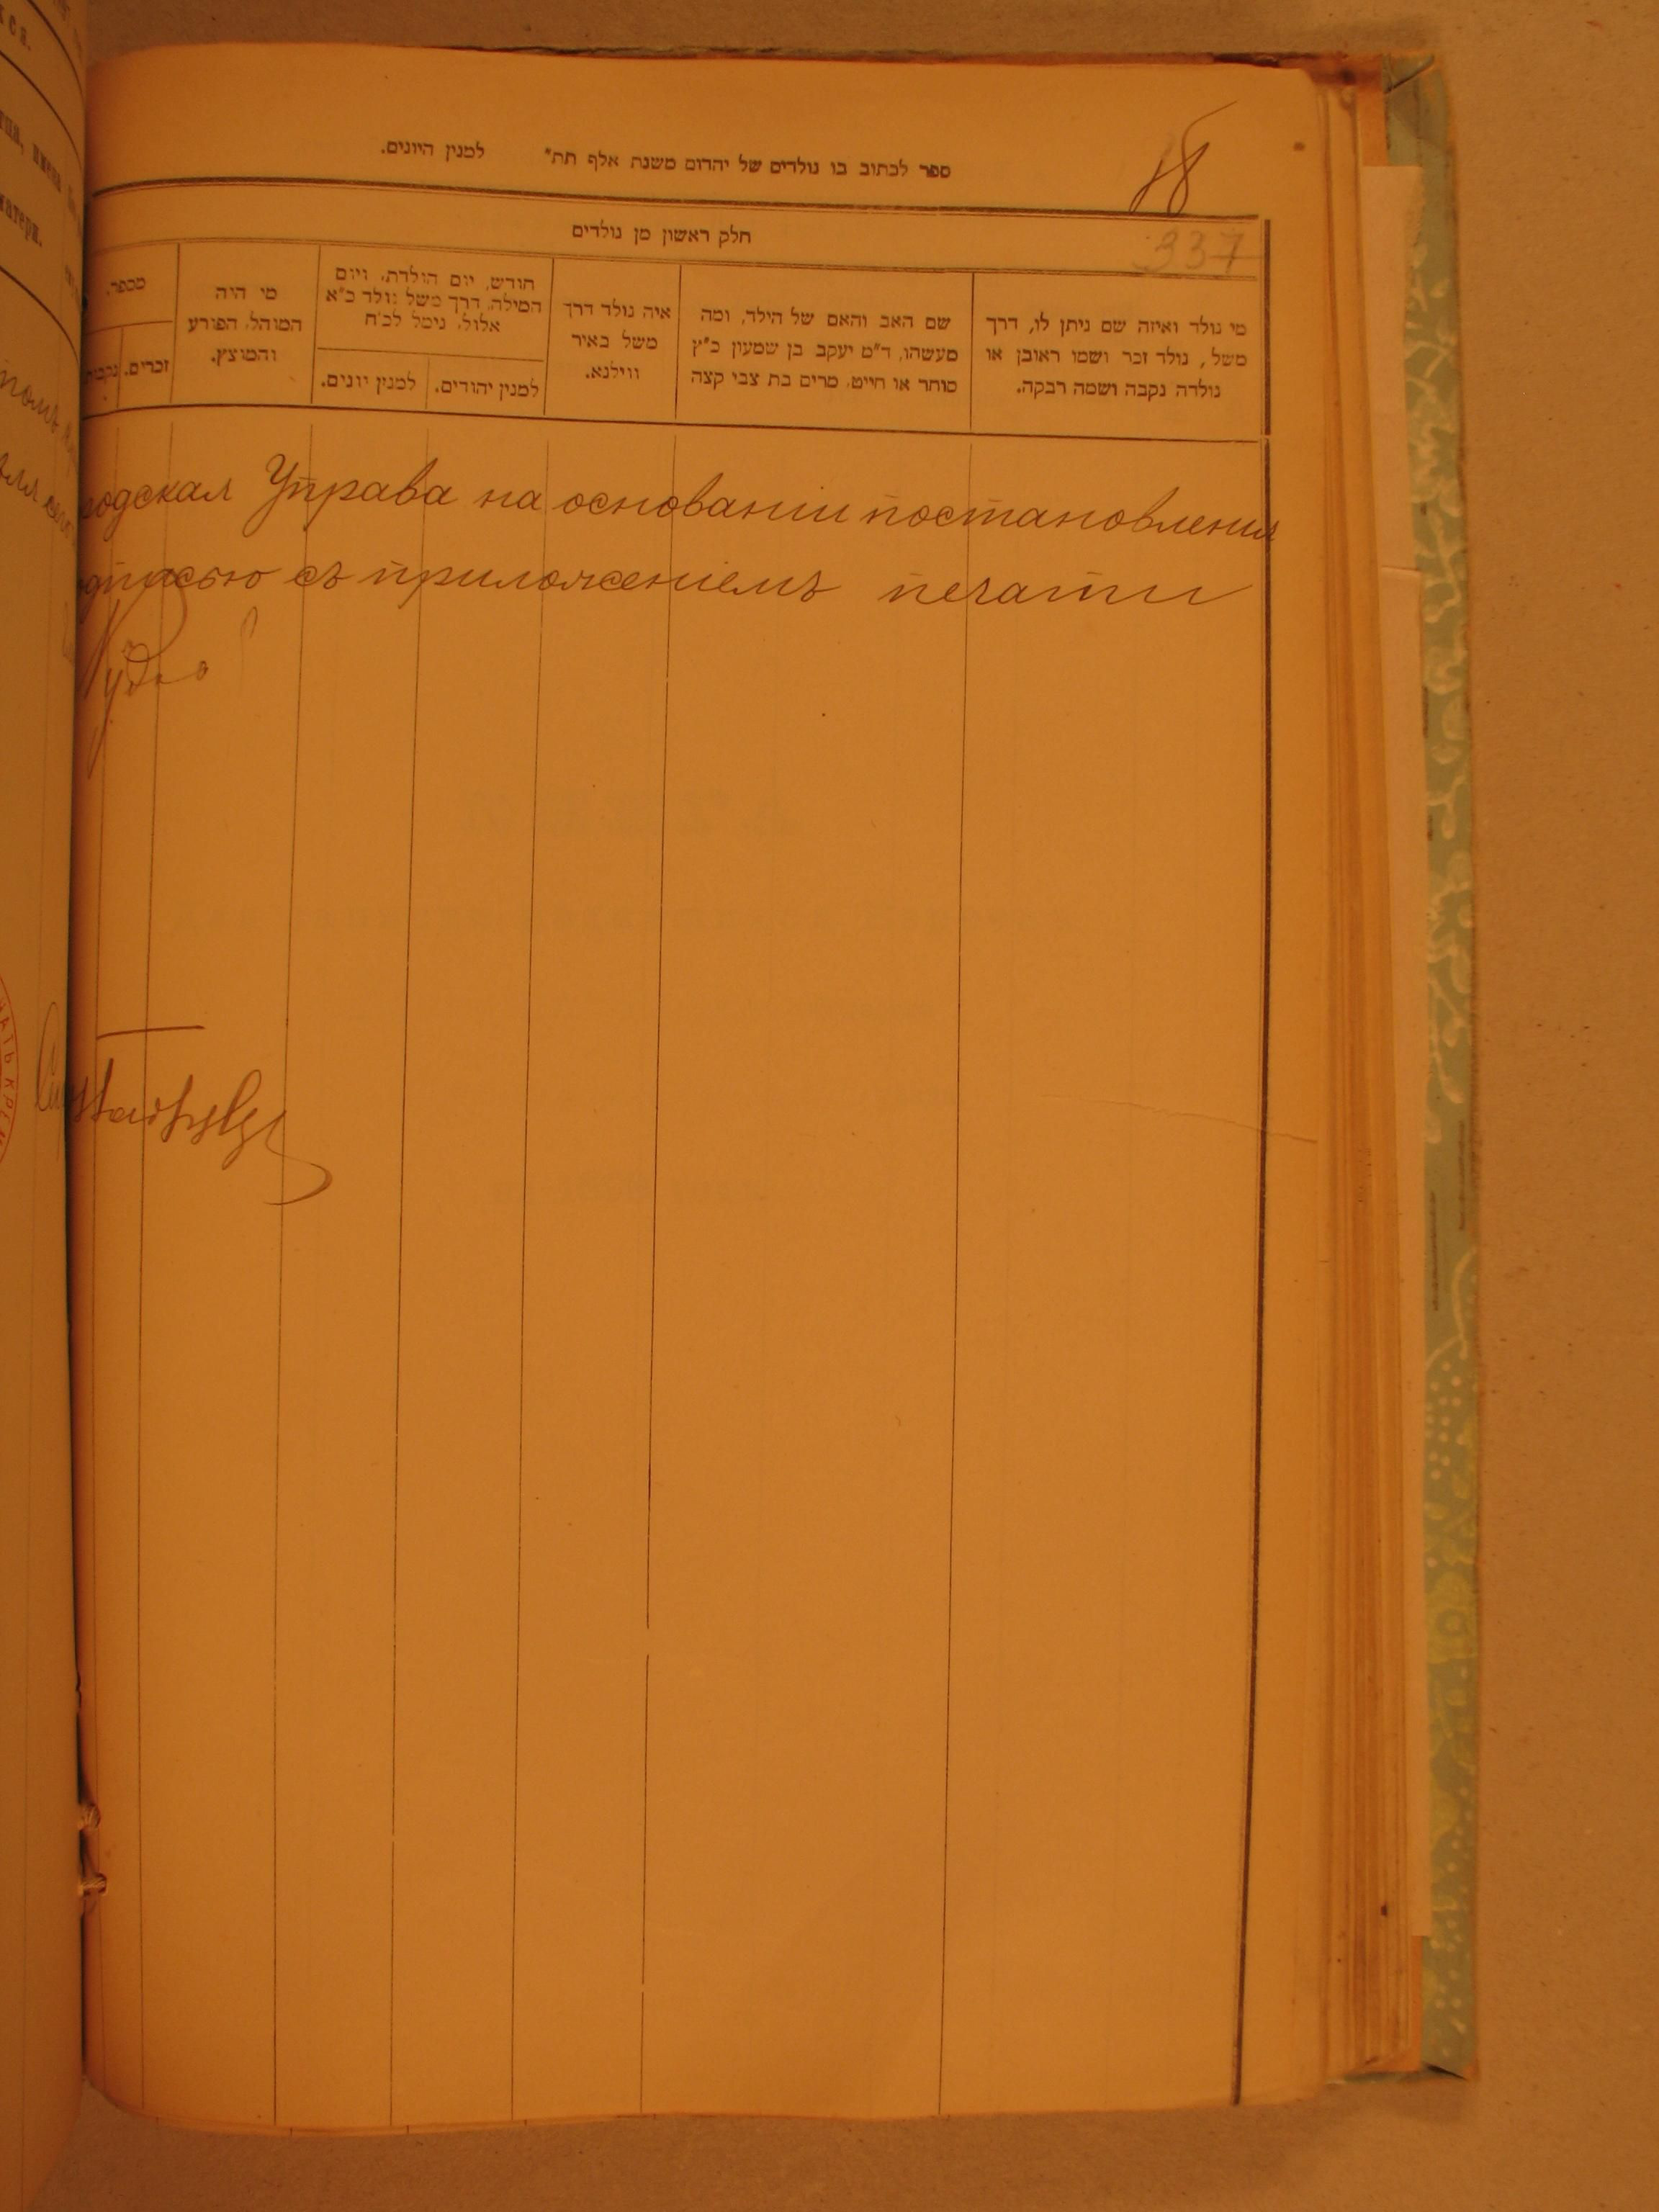 18
ספר לכתוב בו נולדים של יהדום משנת אלף תת״ למנין היונים.
337
חלק ראשון מן נולדים
מי נולד ואיזה שם ניתן לו, דרך
משל, נולד זכר ושמו ראובן או
נולדה נקבה ושמה רבקה.
שם האב והאם של הילד, ומה
מעשהו, ד״מ יעקב בן שמעון כ״ץ
סוחר או חייט, מרים בת צבי קצה
איה נולד דרך
משל באיר
ווילנא.
חודש, יום הולדת, ויום
המילה, דרך משל נולד כ״א
אלול, נימל לכ״ח
למנין יהודים.
למנין יונים.
מי היה
המוהל, הפורע
והמוצץ.
מספר.
זכרים.
נקבות
родская Управа на основаніи постановленія
одписью съ приложеніемъ печати